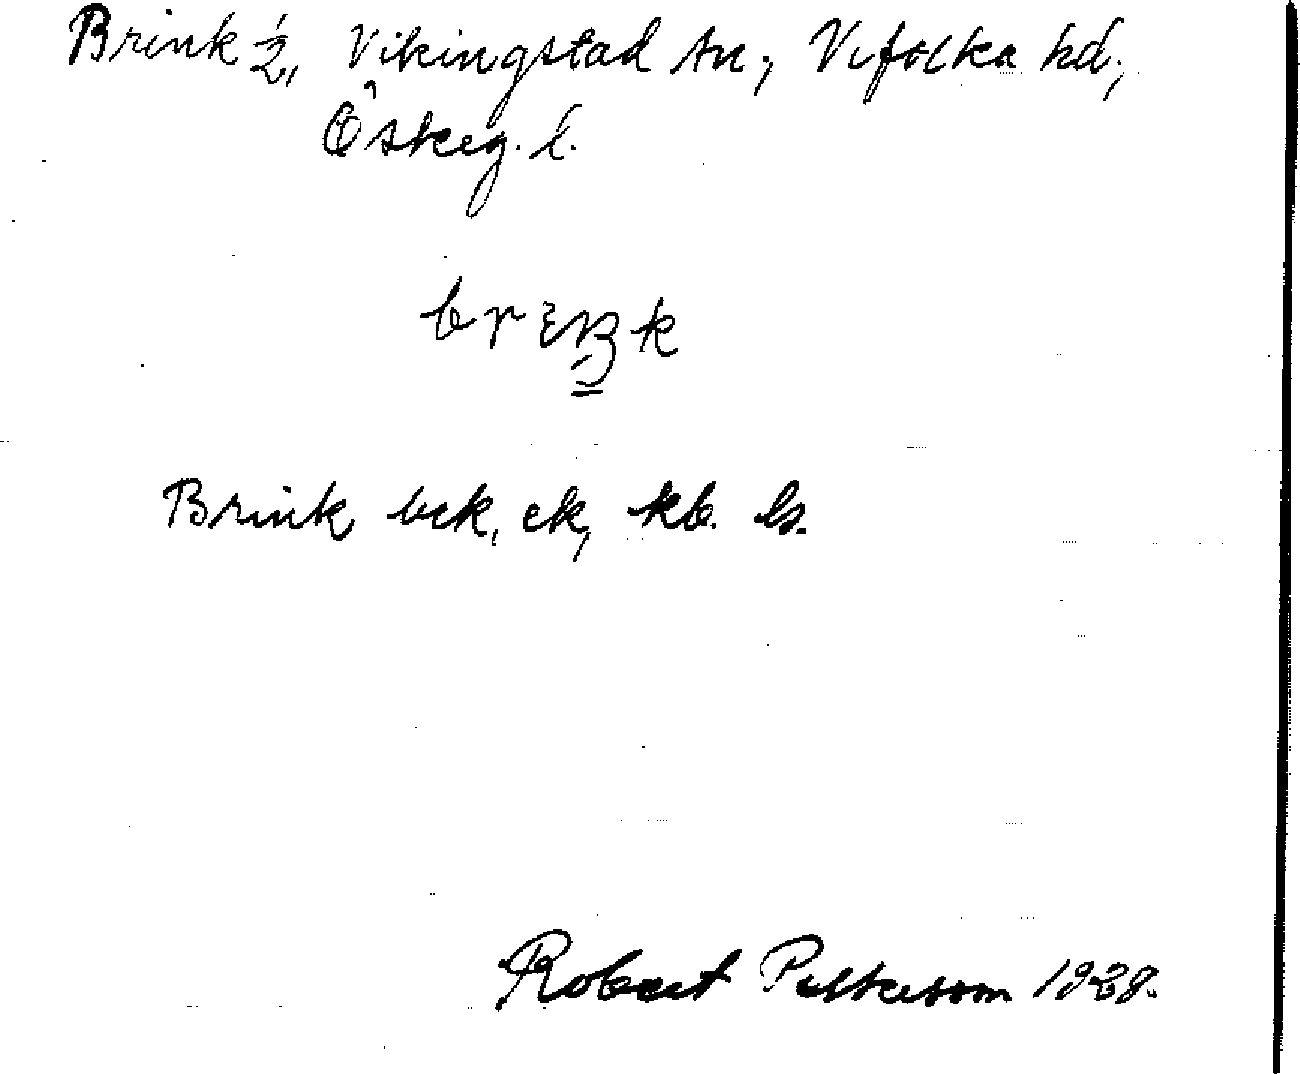 Brink ½, Vikingstad sn; Vifolka hd;
Östeg. l.
brıŋk
Brink bck, ek, kb. ls.
Robert Pettersson 1929.